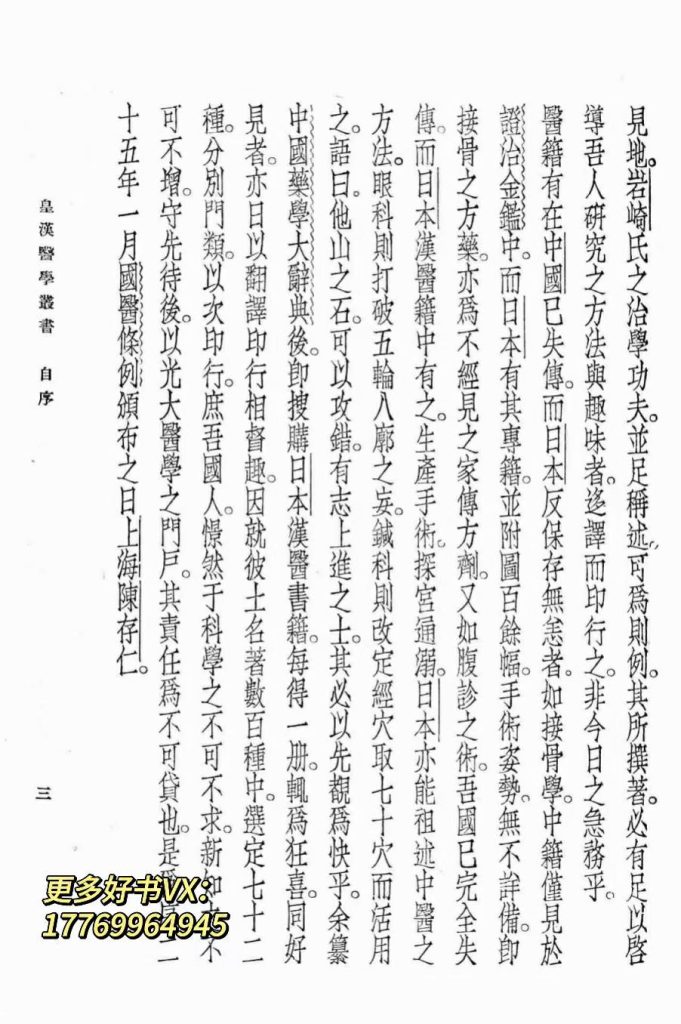 見地。岩崎氏之治學功夫。並足稱述。可爲則例。其所撰著。必有足以啓
導吾人研究之方法與趣味者。迻譯而印行之。非今日之急務乎。
醫籍有在中國已失傳。而日本反保存無恙者。如接骨學。中籍僅見於
證治金鑑中。而日本有其專籍。並附圖百餘幅。手術姿勢。無不詳備。卽
接骨之方藥。亦爲不經見之家傳方劑。又如腹診之術。吾國已完全失
傳。而日本漢醫籍中有之。生產手術。探宮通溺。日本亦能祖述中醫之
方法。眼科則打破五輪八廓之妄。鍼科則改定經穴取七十穴而活用
之。語曰。他山之石。可以攻錯。有志上進之士。其必以先覩爲快乎。余纂
中國藥學大辭典後。卽搜購日本漢醫書籍。每得一册。輒爲狂喜。同好
見者。亦日以翻譯印行相督趣。因就彼土名著數百種中。選定七十二
種。分別門類。以次印行。庶吾國人。憬然于科學之不可不求。新知不
可不增。守先待後。以光大醫學之門戶。其責任爲不可貸也。是二
十五年一月國醫條例頒布之日上海陳存仁。
皇漢醫學叢書 自序
三
更多好书VX:
17769964945